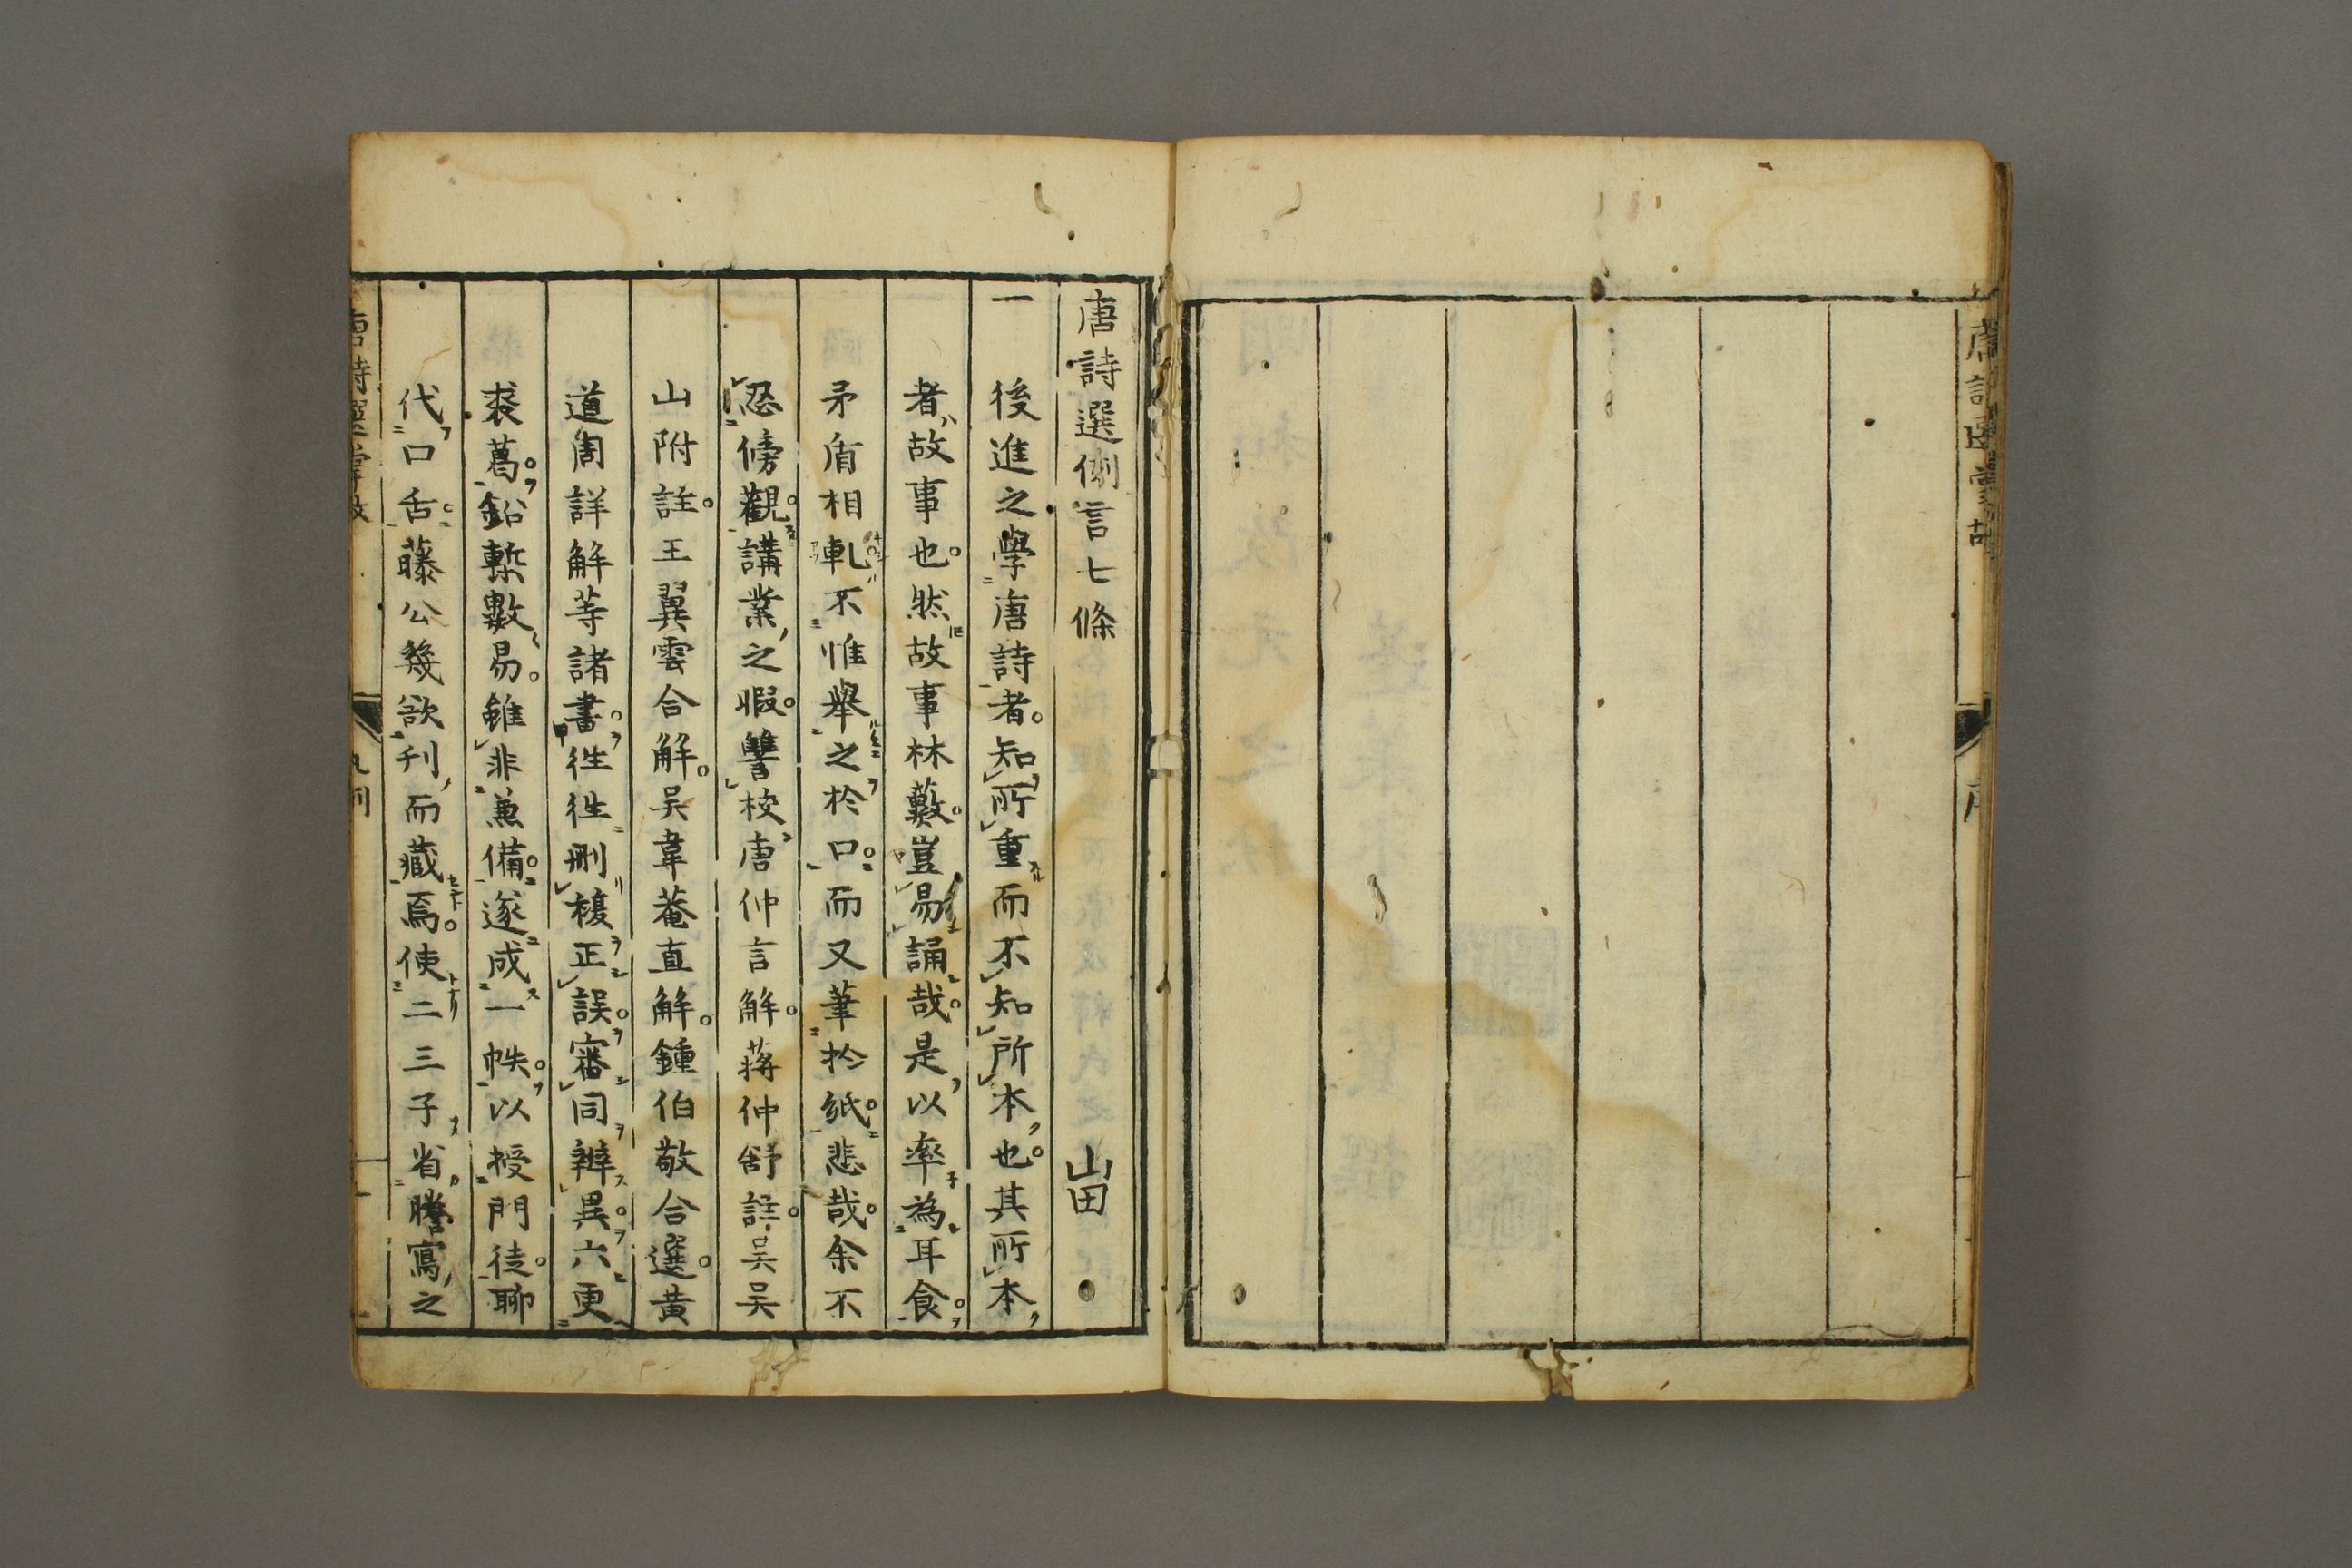 唐詩選例言七條
山田
一後進之學唐詩者。知所重而不知所本也。其所本
者故事也。然故事林藪。豈易誦哉。是以率為耳食。
矛盾相軋不惟舉之於口。而又筆於紙。悲哉。余不
忍傍觀。講業之暇。讐校唐仲言解。蔣仲舒註。吳吳
山附註。王翼雲合解。吳韋菴直解。鍾伯敬合選。黃
道周詳解等諸書。徃徃刪複正誤。審同辨異。六更
裘葛。鉛槧數易。雖非兼備。遂成一帙。以授門徒。聊
代口舌。藤公幾欲刊而藏焉。使二三子省謄寫之
唐詩選掌故
凡例
一